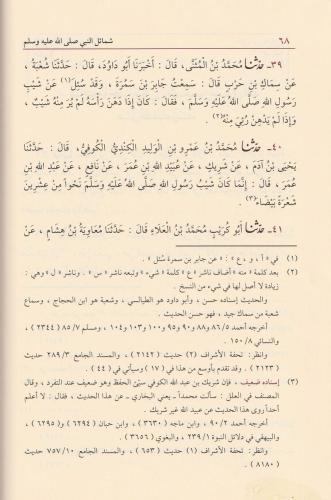 ٦٨ شمائل النبي صلى الله عليه وسلم
٣٩- حَدَّثَنَا مُحَمَّدُ بْنُ الْمُثَنَّى، قَالَ: أَخْبَرَنَا أَبُو دَاوُدَ، قَالَ: حَدَّثَنَا شُعْبَةُ،
عَنْ سِمَاكِ بْنِ حَرْبٍ قَالَ: سَمِعْتُ جَابِرَ بْنَ سَمُرَةَ، وَقَدْ سُئِلَ(١) عَنْ شَيْبِ
رَسُولِ اللهِ صَلَّى اللهُ عَلَيْهِ وَسَلَّمَ، فَقَالَ: كَانَ إِذَا دَهَنَ رَأْسَهُ لَمْ يُرَ مِنْهُ شَيْبٌ،
وَإِذَا لَمْ يَدْهُنْ رُئِيَ مِنْهُ(٢).
٤٠- حَدَّثَنَا مُحَمَّدُ بْنُ عُمَرَ بْنِ الْوَلِيدِ الْكِنْدِيُّ الْكُوفِيُّ، قَالَ: حَدَّثَنَا
يَحْيَى بْنُ آدَمَ، عَنْ شَرِيكٍ، عَنْ عُبَيْدِ اللهِ بْنِ عُمَرَ، عَنْ نَافِعٍ، عَنْ عَبْدِ اللهِ بْنِ
عُمَرَ، قَالَ: إِنَّمَا كَانَ شَيْبُ رَسُولِ اللهِ صَلَّى اللهُ عَلَيْهِ وَسَلَّمَ نَحْواً مِنْ عِشْرِينَ
شَعْرَةً بَيْضَاءَ(٣).
٤١- حَدَّثَنَا أَبُو كُرَيْبٍ مُحَمَّدُ بْنُ الْعَلَاءِ قَالَ: حَدَّثَنَا مُعَاوِيَةُ بْنُ هِشَامٍ، عَنْ
(١) في «أ، و، ع»: «عن جابر بن سمرة سُئل».
(٢) بعد كلمة «منه» أضاف ناشر «ع» كلمة «شيء» وتبعه ناشر «س». وناشر «ل» وهي:
زيادة لا أصل لها في شيء من النسخ.
والحديث إسناده حسن، وأبو داود هو الطيالسي، وشعبة هو ابن الحجاج، وسماع
شعبة من سماك جيد، فهو حسن الحديث.
أخرجه أحمد ٨٦/٥ و٨٨ و٩٠ و٩٥ و١٠٠ و١٠٣ و١٠٤، ومسلم ٨٥/٧ (٢٣٤٤)
والنسائي ١٥٠/٨.
وانظر: تحفة الأشراف (٢) حديث (٢١٤٢)، والمسند الجامع ٢٨٩/٣ حديث
(٢١٢٣)، وقد تقدم بأوسع من هذا في (١٧) وسيأتي في (٤٤).
(٣) إسناده ضعيف، فإن شريك بن عبد الله الكوفي سيّئ الحفظ وهو ضعيف عند التفرد، وقال
المصنف في العلل: سألت محمداً- يعني البخاري- عن هذا الحديث، فقال: لا أعلم
أحداً روى هذا الحديث عن عبيد الله غير شريك.
أخرجه أحمد ٩٠/٢، وابن ماجه (٣٦٣٠)، وابن حبان (٦٢٩٤) و(٦٢٩٥)،
والبيهقي في دلائل النبوة ٢٣٩/١، والبغوي (٣٦٥٦).
وانظر: تحفة الأشراف (١) حديث (٦٥٣)، والمسند الجامع ٧٥٧/١٠ حديث
(٨١٨٠).